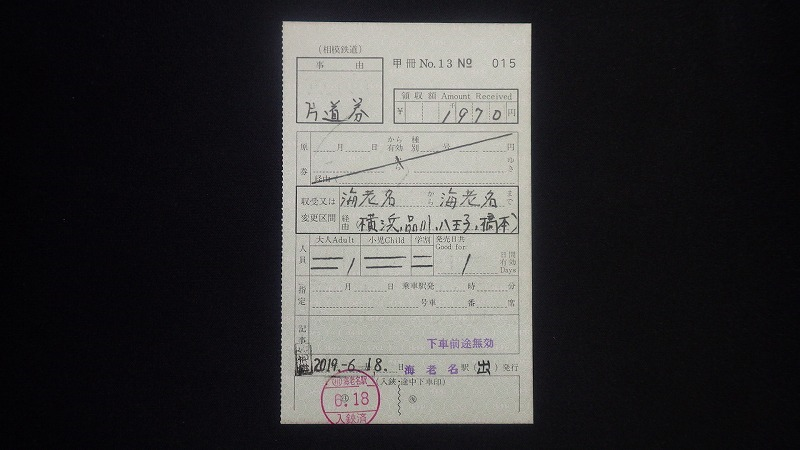 (相模鉄道)
事 由
甲 冊 No.13 № 015
片道券
領 収 額 Amount Received
¥ 1970 円
原券
月 日 から有効 種別 号 円
ゆき
経由
収受又は変更区間
海老名 から 海老名 まで
経由 (横浜、品川、八王子、橋本)
人員
大人Adult 小児Child 学割 発売日共 Good for
1 1 日間有効 Days
指定
月 日 乗車駅発 時 分
号車 番 席
記事
下車前途無効
2019.-6.18. 日 海老名 駅 (出) 発行
(入鋏・途中下車印)
海老名駅
6.18
入鋏済